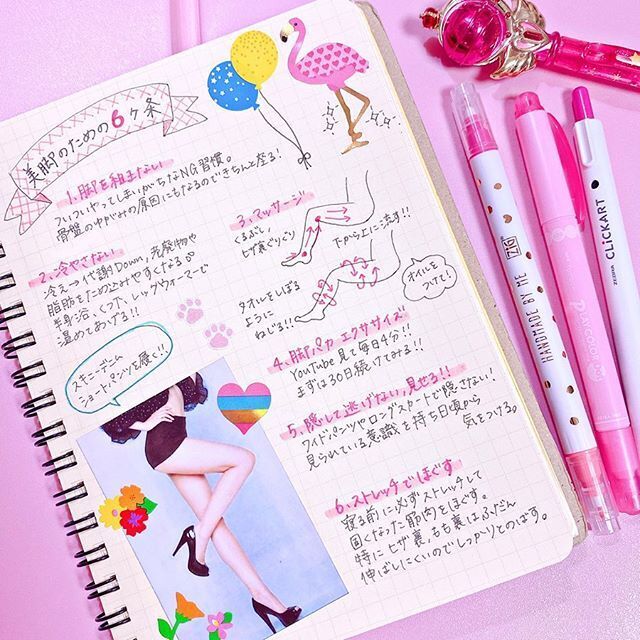 美脚のための6ケ条
1.脚を組まない
ついついやってしまいがちなNG習慣。
骨盤のゆがみの原因にもなるのできちんと座る!
2.冷やさない
冷え→代謝Down,老廃物や
脂肪をため込みやすくなる。
半身浴、くつ下、レッグウォーマーで
温めてあげる!!
スキニーデニム
ショートパンツを履く!!
3.マッサージ
くるぶし
ヒザ裏ぐりぐり
下から上に流す!!
タオルをしぼる
ように
ねじる!!
オイルを
つけて!
4.脚パカ エクササイズ
YouTube見て毎日4分!!
まずは30日続けてみる!!
5.隠して逃げない,見せる!!
ワイドパンツやロングスカートで隠さない!
見られている意識を持ち日頃から
気をつける。
6.ストレッチでほぐす
寝る前に必ずストレッチして
固くなった筋肉をほぐす。
特にヒザ裏、もも裏はふだん
伸ばしにくいのでしっかりとのばす。
HANDMADE BY ME ZIG
PLAYCOLOR
ZEBRA CLiCKART